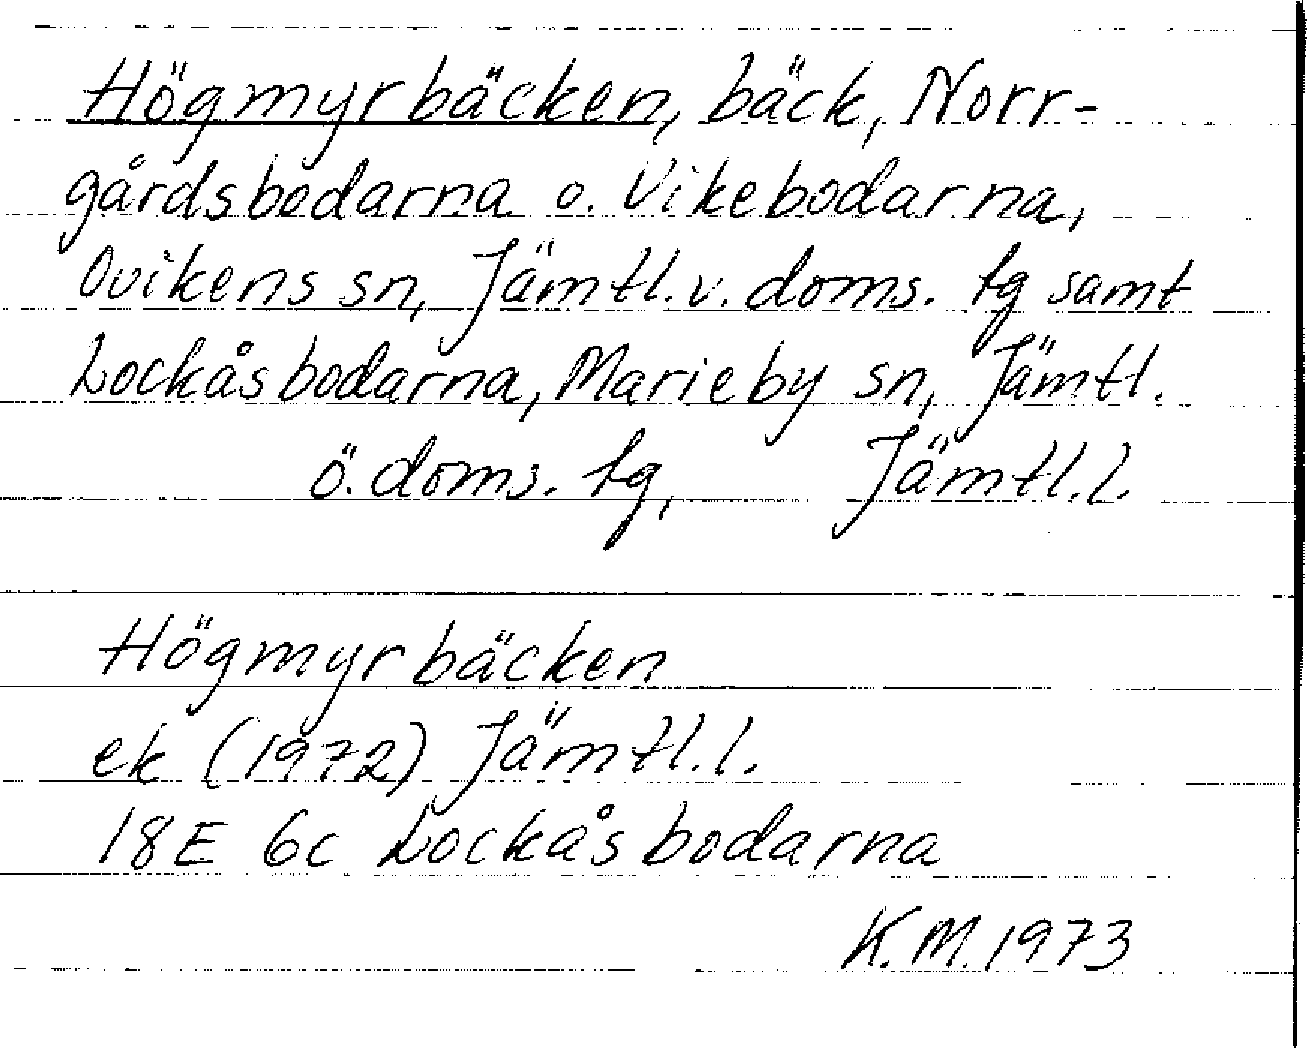 Högmyrbäcken, bäck, Norr-
gårdsbodarna o. Vikebodarna,
Ovikens sn, Jämtl. v. doms. tg samt
Lockåsbodarna, Marieby sn, Jämtl.
ö. doms. tg, Jämtl. l.
Högmyrbäcken
ek (1972) Jämtl. l.
18E 6c Lockåsbodarna
K.M. 1973